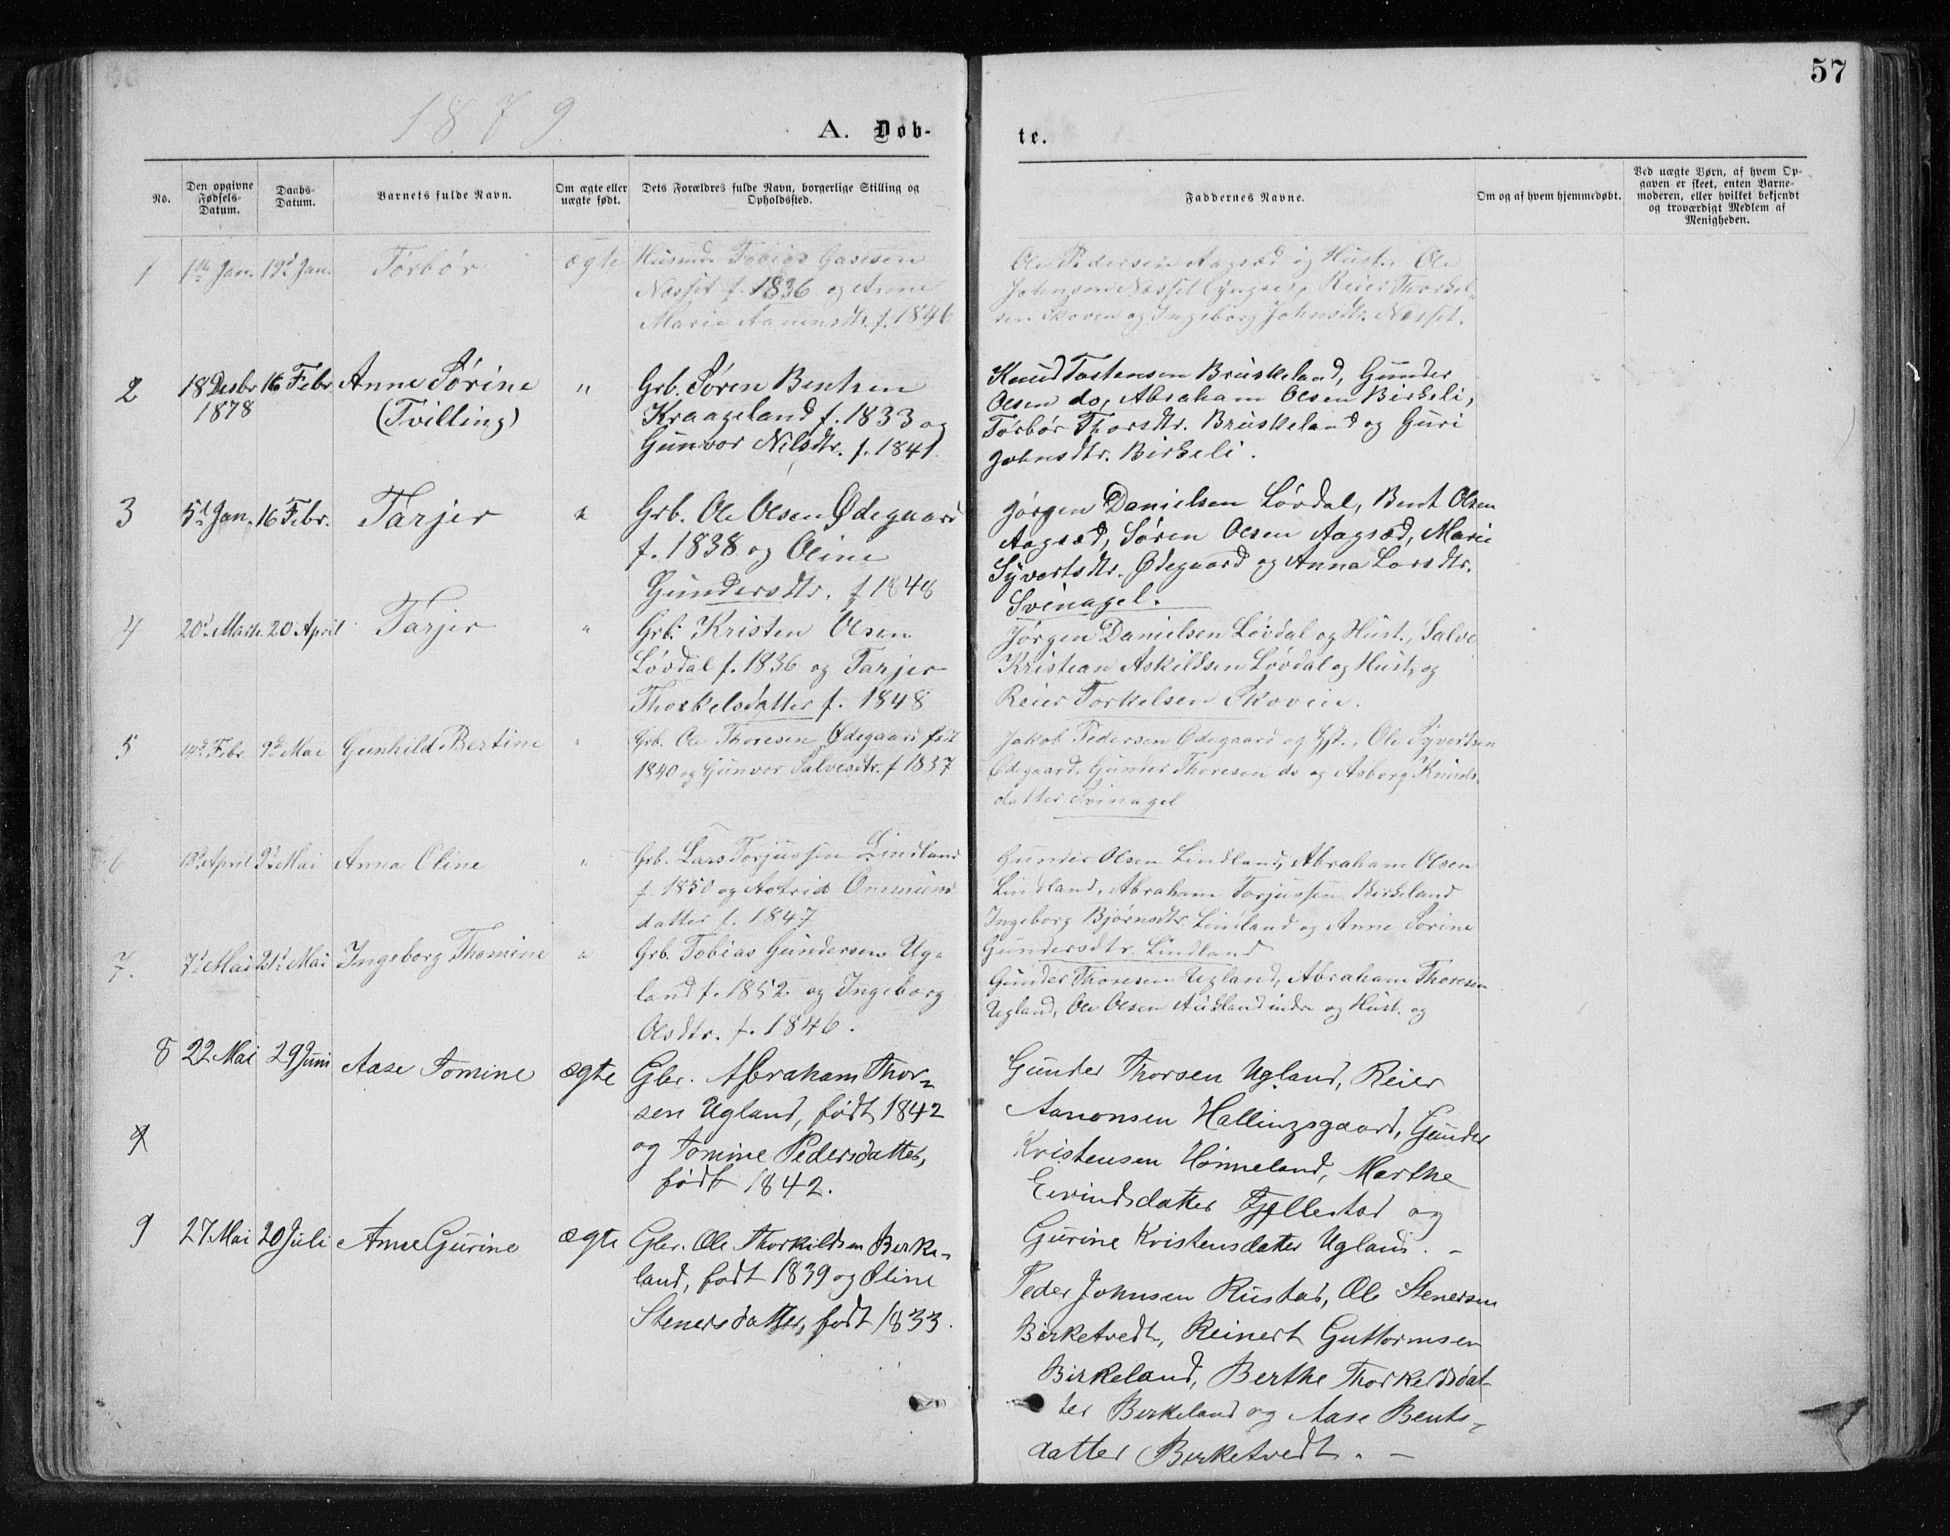 57
1879
A. Døb-
te.
No.
Den opgivne Fødsels-Datum.
Daabs-Datum.
Barnets fulde Navn.
Om ægte eller uægte født.
Dets Forældres fulde Navn, borgerlige Stilling og Opholdssted.
Faddernes Navne.
Om og af hvem hjemmedøbt.
Ved uægte Børn, af hvem Opgaven er skeet, enten Barnemoderen, eller hvilket bekjendt og troværdigt Medlem af Menigheden.
1
Jan. 19d Jan.
Torbør
ægte
Husmd. Tobias
Næsset f. 1836 og Anne
Marie Aanensdtr. f. 1846
Ole Pedersen Aagsæd og Hust., Ole
Johnsen Næsset, Reier Thorkel-
sen Skoven og Ingeborg Johnsdtr. Næsset.
2
18 Desbr 16 Febr
1878
Anne Sørine
(Tvilling)
"
Grb. Søren Bentsen
Kraageland f. 1833 og
Gunvor Nilsdtr. f. 1841
Knud Tostensen Bruskeland, Gunder
Olsen do, Abraham Olsen Birkeli,
Torbør Thorsdtr. Bruskeland og Guri
Johnsdtr. Birkeli.
3
5d Jan. 16 Febr.
Tarjer
"
Grb. Ole Olsen Ødegaard
f. 1838 og Oline
Gundersdtr. f 1848
Jørgen Danielsen Løvdal, Bent Olsen
Aagsæd, Søren Olsen Aagsæd, Marie
Syvertsdtr. Ødegaard og Anna Larsdtr.
Svinagel.
4
20d Marts 20 April
Tarjer
"
Grb. Kristen Olsen
Løvdal f. 1836 og Tarjer
Thorkelsdatter f. 1848
Jørgen Danielsen Løvdal og Hust., Salve
Kristian Askildsen Løvdal og Hust, og
Reier Torkelsen Skoven.
5
14d Febr 9d Mai
Gunhild Bertine
"
Grb. Ole Thoresen Ødegaard født
1840 og Gunvor Salvesdtr. f 1837
Jakob Pedersen Ødegaard og Hst., Ole Syvertsen
Ødegaard, Gunder Thoresen do og Asborg Knuds-
datter Svinagel
6
13d April 9d Mai
Anna Oline
"
Grb. Lars Torjussen Lindland
f. 1850 og Astrid Ommund
datter f. 1847
Gunder Olsen Lindland, Abraham Olsen
Lindland, Abraham Torjussen Birkeland
Ingeborg Bjørnsdtr Lindland og Anne Sørine
Gundersdtr. Lindland
7.
7d Mai 21d Mai
Ingeborg Thomine
"
Grb. Tobias Gundersen Ug-
land f. 1852 og Ingeborg
Olsdtr. f. 1846.
Gunder Thoresen Ugland, Abraham Thoresen
Ugland, Ole Olsen Aukland indre og Hust. og
8
22 Mai 29 Juni
Aase Tomine
ægte
Gbr. Abraham Thor-
sen Ugland, født 1842
og Tomine Pedersdatter,
født 1842.
Gunder Thorsen Ugland, Reier
Aanonsen Hallingsgaard, Gunder
Kristensen Hønneland, Marthe
Eivindsdatter Fjellestad og
Gurine Kristensdatter Ugland. -
9
27 Mai 20 Juli
Anne Gurine
ægte
Gbr. Ole Thorkildsen Birke-
land, født 1839 og Oline
Stenersdatter, født 1833.
Peder Johnsen Rustad, Ole Stenersen
Birketvedt, Reinert Guttormsen
Birkeland, Berthe Thorkeldsdat-
ter Birkeland og Aase Bents-
datter Birketvedt. -